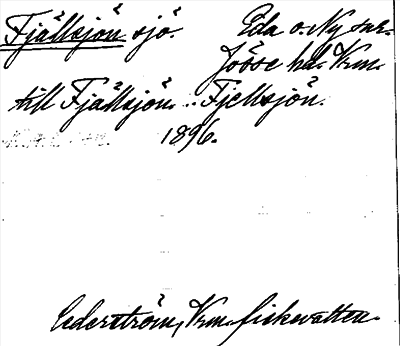 Fjällsjön sjö. Eda o. Ny snr.
Jösse hd. Vrm.
till Fjällsjön .. Fjellsjön.
1896.
Cederström, Vrm. fiskevatten.